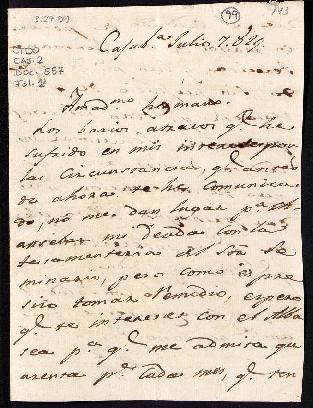 99
CAJ. 2
DOC. 557
Fol. 1
Casab.ca Julio 7. 829.
Amad.mo hermano.
Los barios atrazos q.e he
sufrido en mis intereses por
las circunstancias, q.e antes
de ahora te he comunica
do, no me dan lugar p.a
mi deuda con la
testamentaria del Sor Se
minario, pero como es pre
siso tomar remedio, espero
q.e te intereses con el Alba
sea p.a q.e me admita qu
arenta p.s cada mes, q.e son